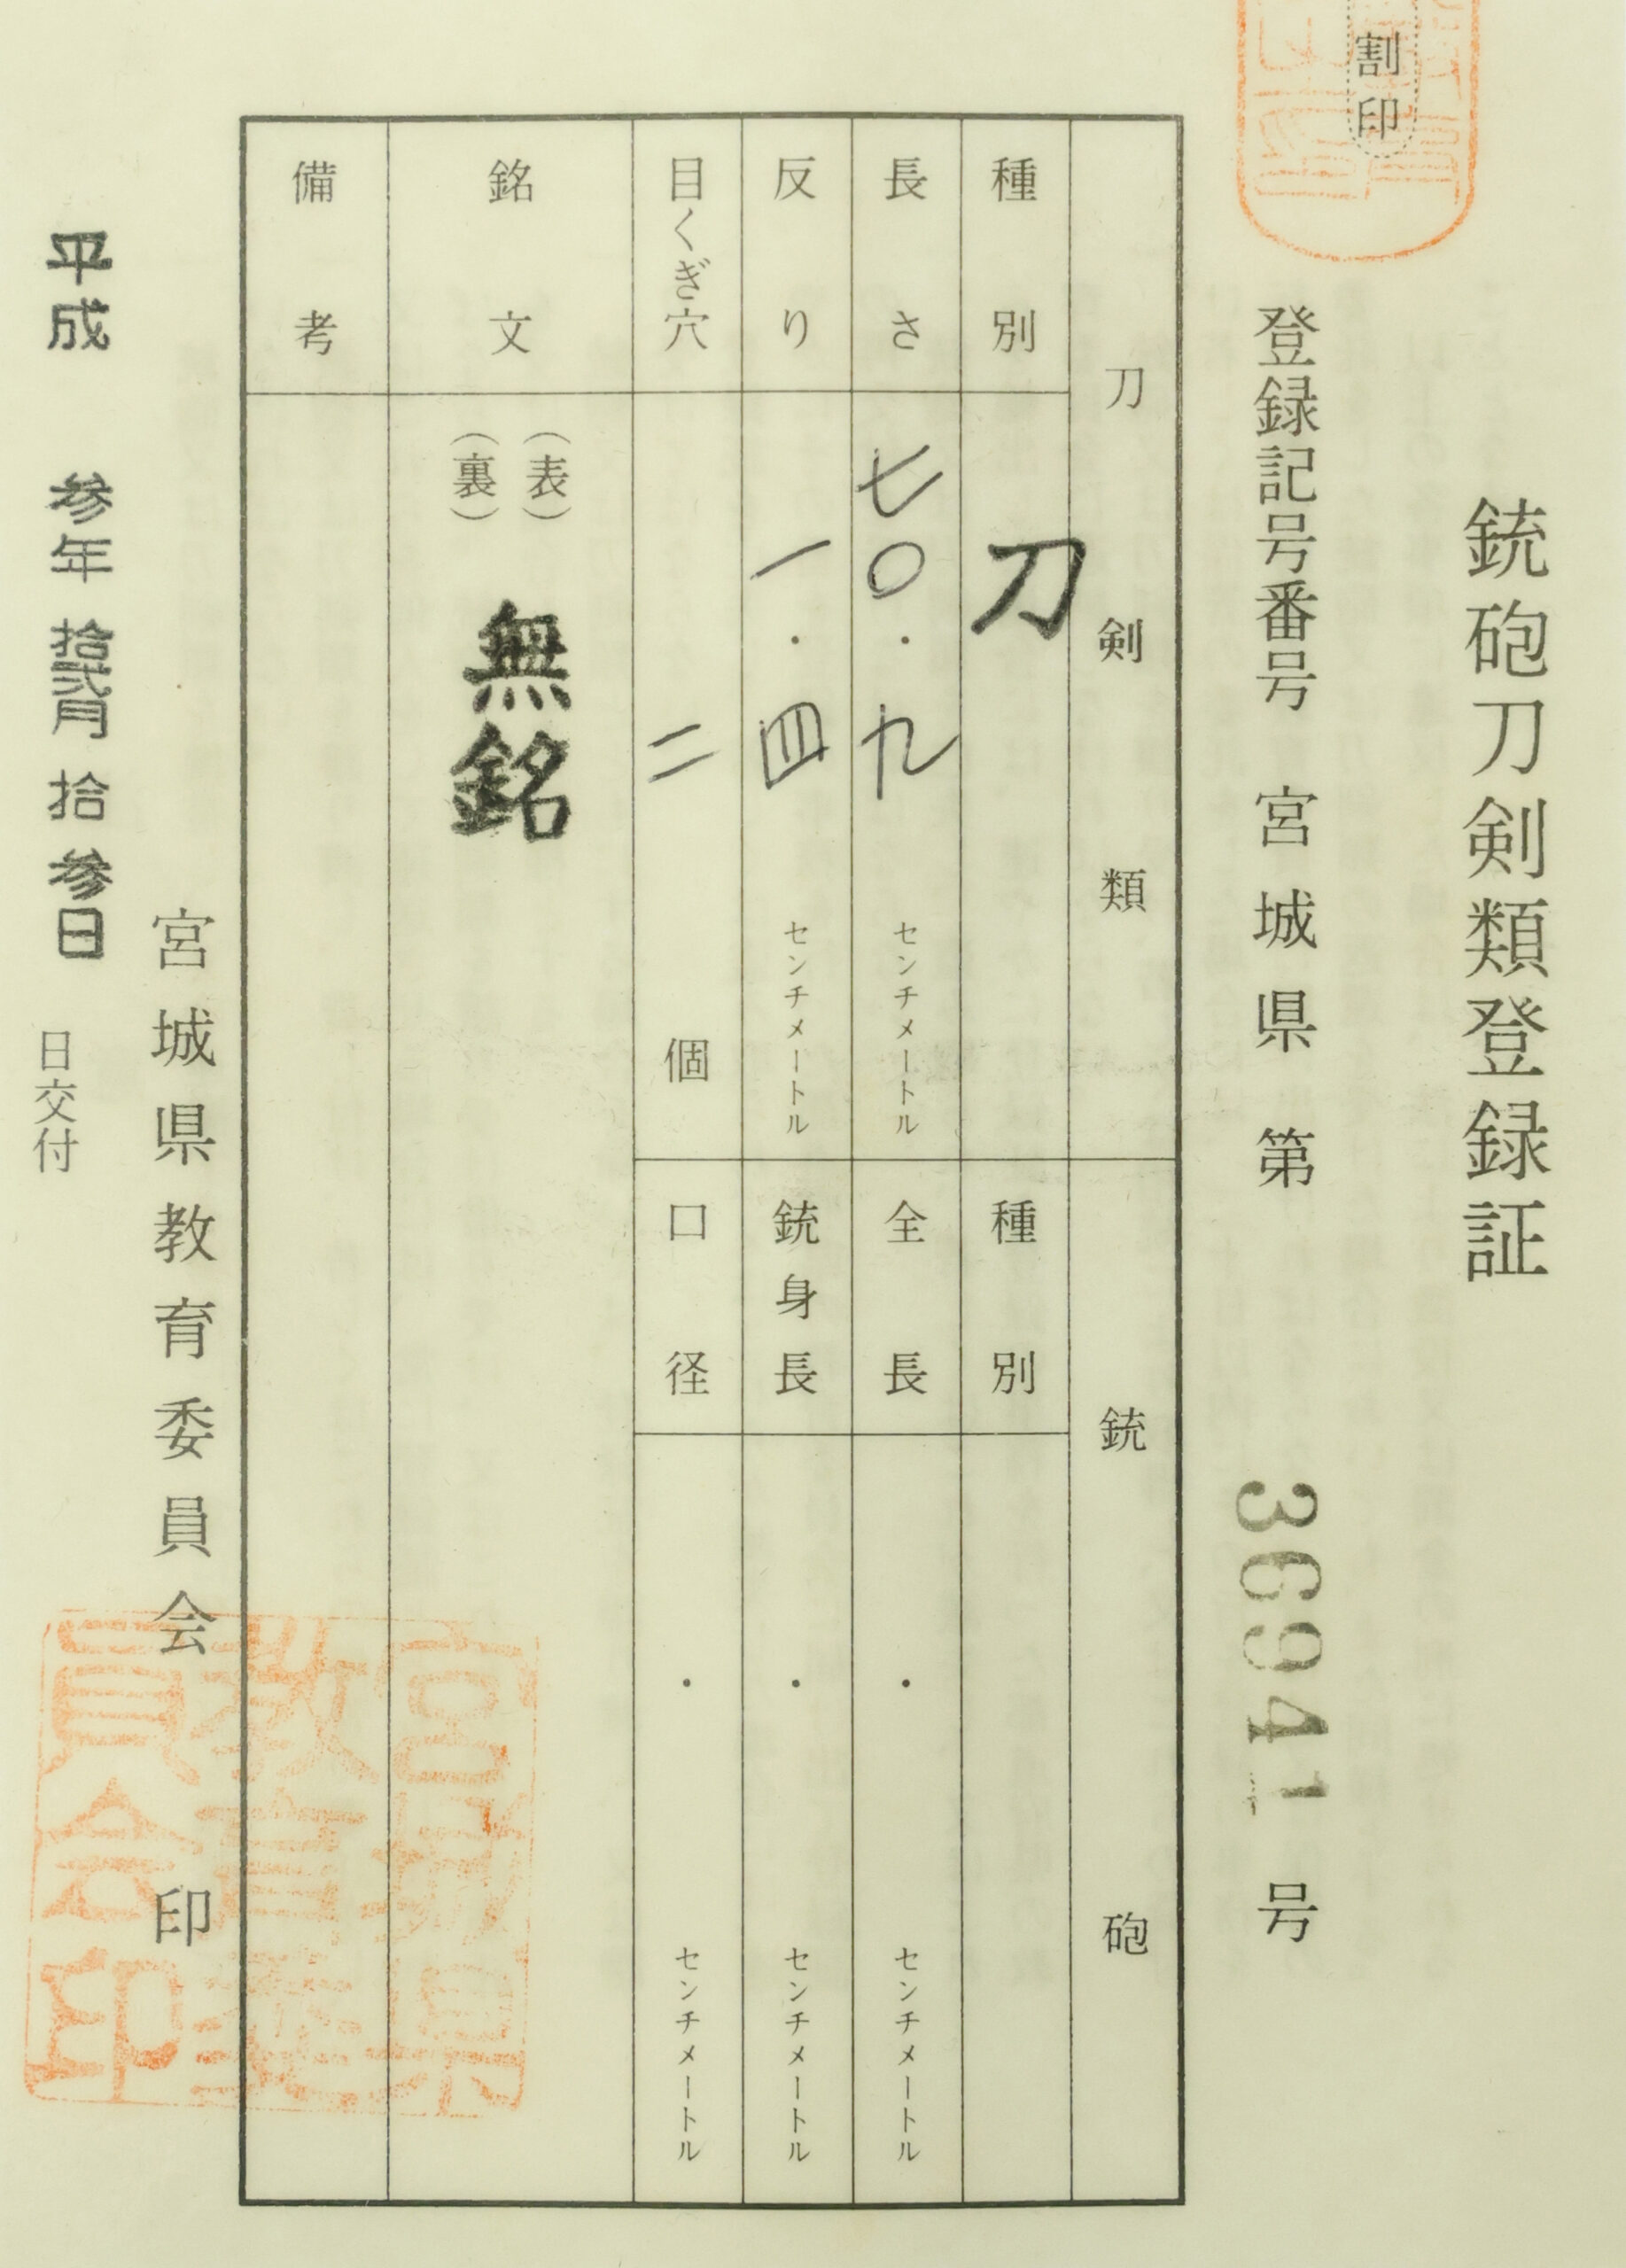 銃砲刀剣類登録証
割印
登録記号番号 宮城県 第 36941 号
刀剣類
銃砲
種別 刀
種別
長さ 七〇・九 センチメートル
全長 ・ センチメートル
反り 一・四 センチメートル
銃身長 ・ センチメートル
目くぎ穴 二 個
口径 ・ センチメートル
銘文 (表)
(裏)
無銘
備考
宮城県教育委員会 印
宮城県
教育委
員会印
平成 参年 拾弐月 拾参日 日交付